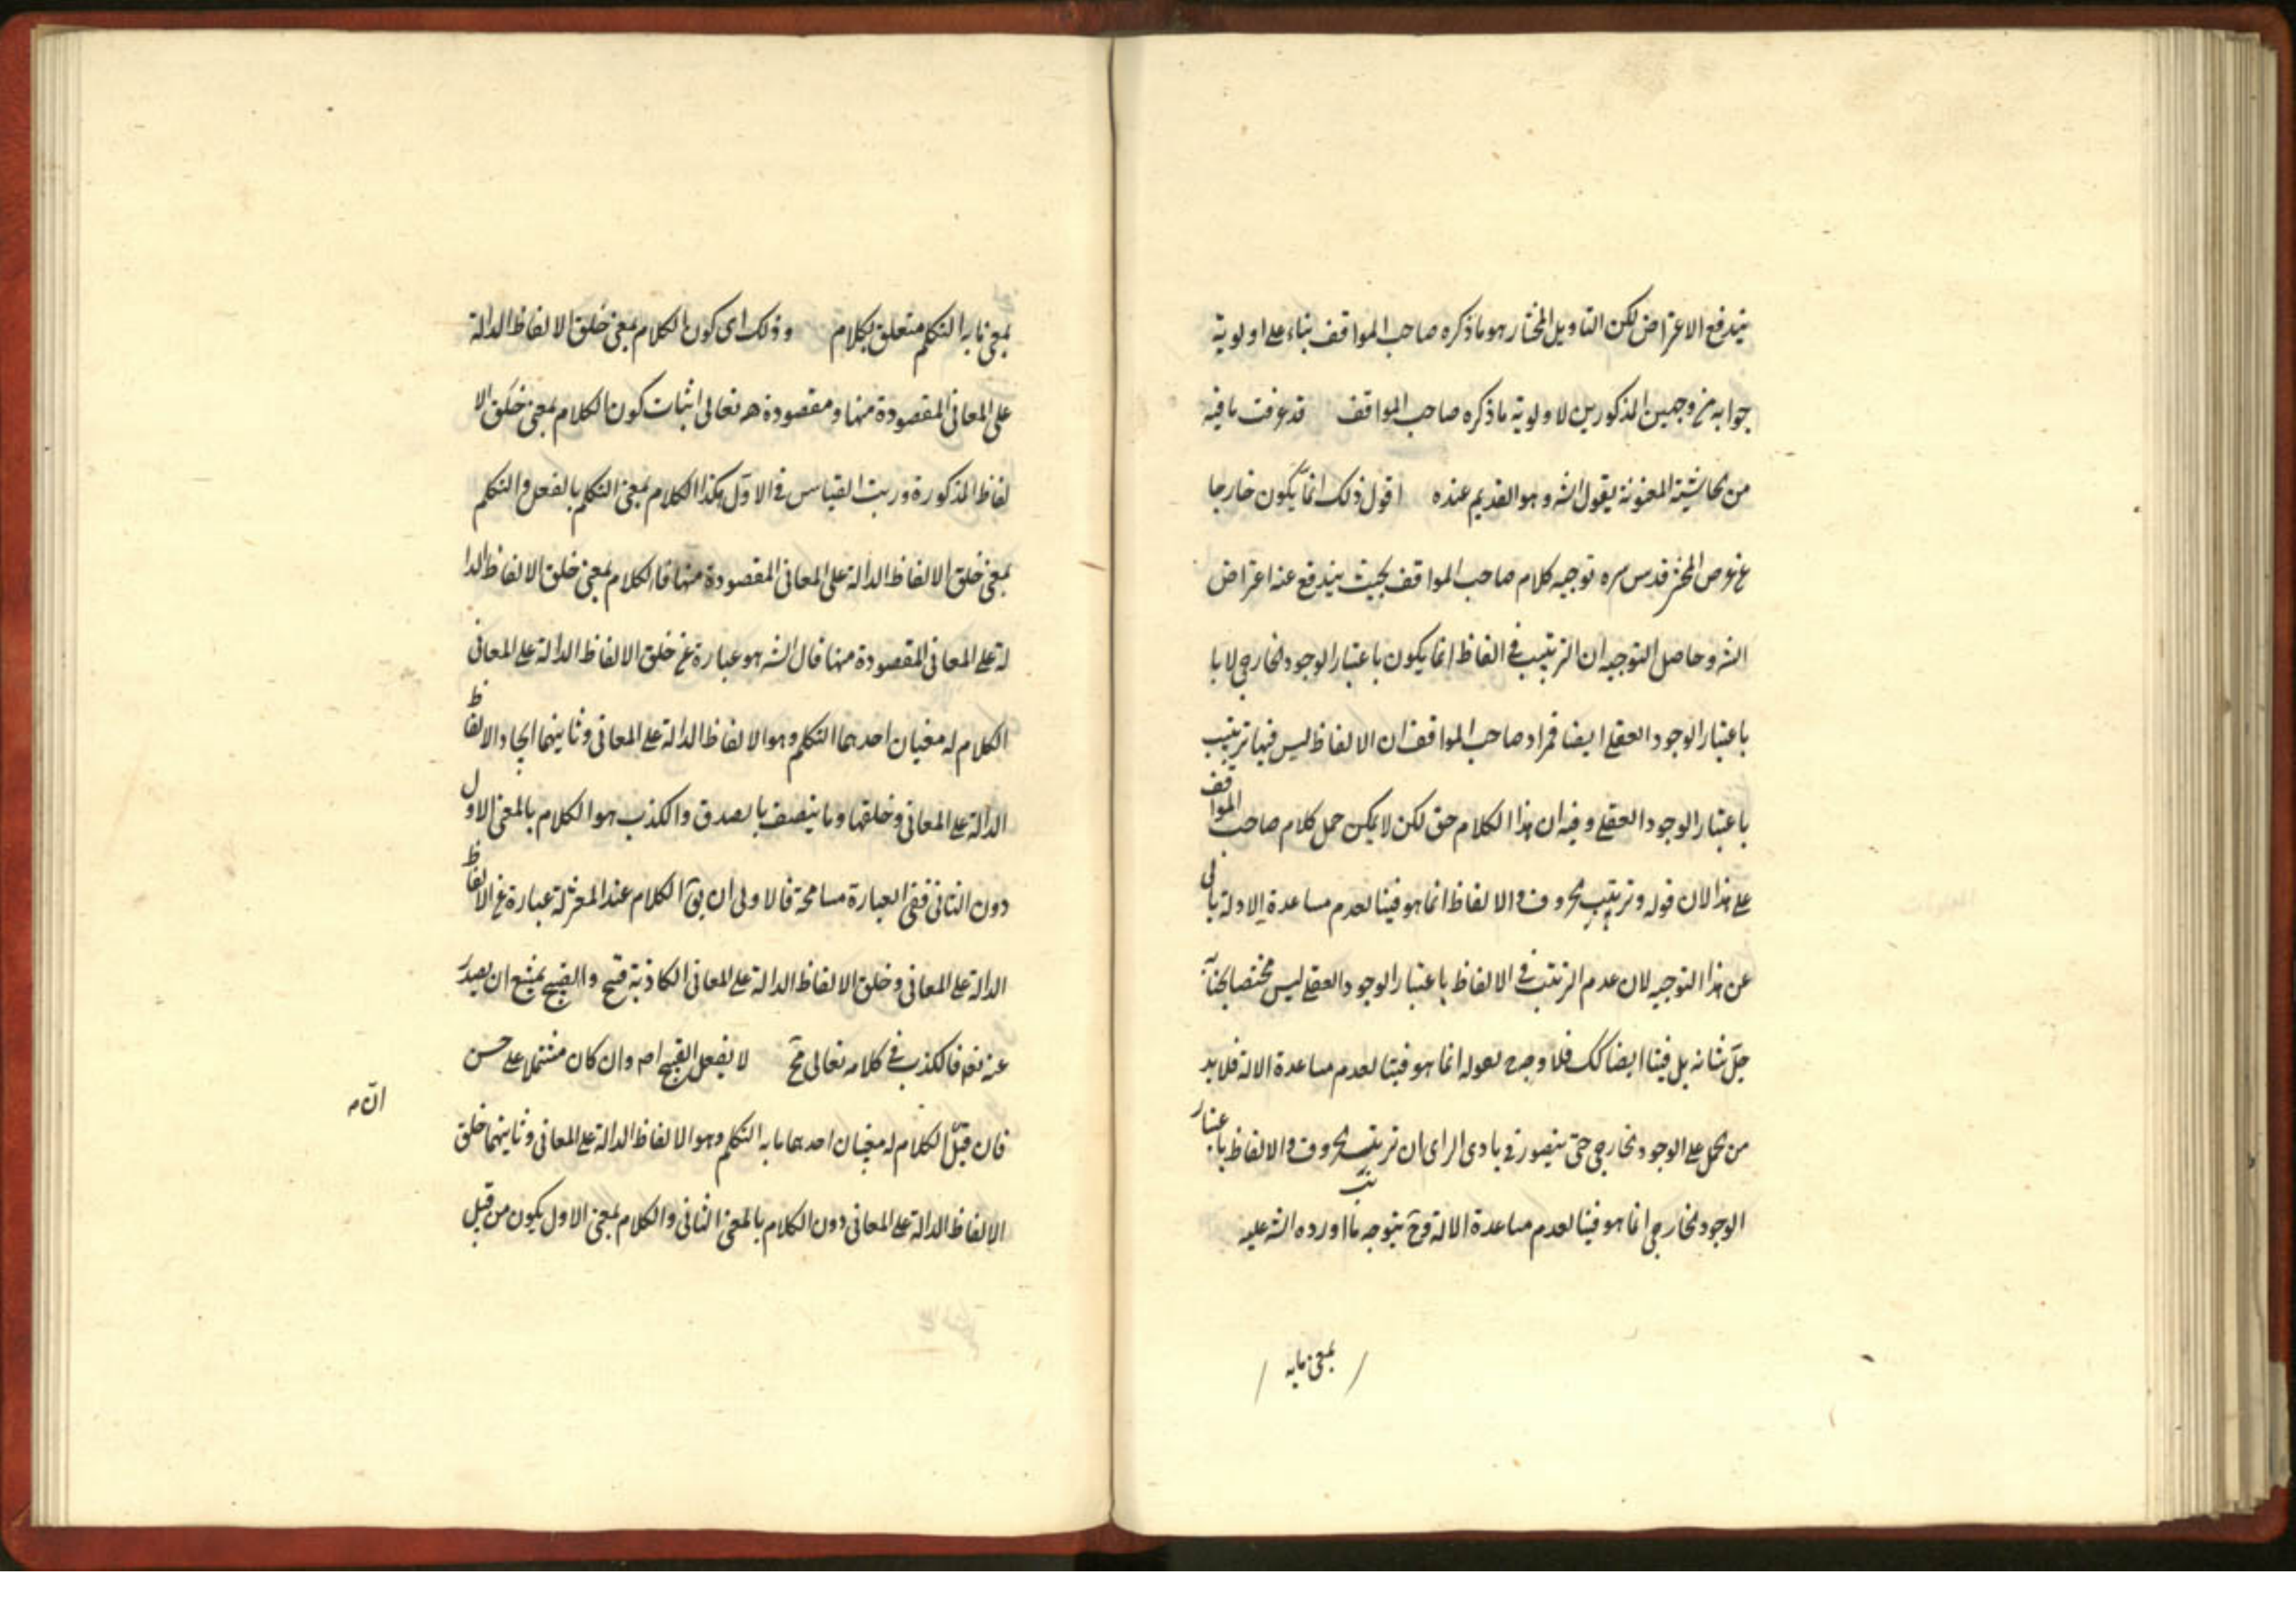 يندفع الاعتراض لكن التاويل المختار هو ما ذكره صاحب المواقف بناء على اولوية
جوابه من وجهين المذكورين لاولوية ما ذكره صاحب المواقف قد عرفت ما فيه
من الحاشية المعنونة بقول الشه وهو القديم عنده اقول ذلك انما يكون خارجا
عن غرض المحشي قدس سره توجيه كلام صاحب المواقف بحيث يندفع عنه اعتراض
الشه وحاصل التوجيه ان الترتيب في الفاظ انما يكون باعتبار الوجود الخارجي لا با
باعتبار الوجود العقلي ايضا فمراد صاحب المواقف ان الالفاظ ليس فيها ترتيب
باعتبار الوجود العقلي وفيه ان هذا الكلام حق لكن لا يمكن حمل كلام صاحب المواقف
على هذا لان قوله وترتيب الحروف والالفاظ انما هو فينا لعدم مساعدة الادلة يابى
عن هذا التوجيه لان عدم الترتب في الالفاظ باعتبار الوجود العقلي ليس مختصا بجنابه
جل شانه بل فينا ايضا كك فلا وجه لقوله انما هو فينا لعدم مساعدة الالة فلا بد
من الحمل على الوجود الخارجي حتى يتصور في بادى الراى ان ترتيب الحروف والالفاظ باعتبار
الوجود الخارجي انما هو فينا لعدم مساعدة الالة وح يتوجه ما اورده الشه عليه
بمعنى ما به
بمعنى ما به التكلم متعلق بكلام وذلك اى كون الكلام بمعنى خلق الالفاظ الدالة
على المعانى المقصودة منها ومقصودة تعالى اثبات كون الكلام بمعنى خلق الا
لفاظ المذكورة ورتب القياس في الاول هكذا الكلام بمعنى التكلم بالفعل والتكلم
بمعنى خلق الالفاظ الدالة على المعانى المقصودة منها فالكلام بمعنى خلق الالفاظ الدا
لة على المعانى المقصودة منها قال الشه هو عبارة عن خلق الالفاظ الدالة على المعانى
الكلام له معنيان احدهما التكلم وهو الالفاظ الدالة على المعانى وثانيهما ايجاد الالفاظ
الدالة على المعانى وخلقها وما يتصف بالصدق والكذب هو الكلام بالمعنى الاول
دون الثانى ففى العبارة مسامحة فالاولى ان يق الكلام عند المعتزلة عبارة عن الالفاظ
الدالة على المعانى وخلق الالفاظ الدالة على المعانى الكاذبة قبح والقبيح يمتنع ان يصدر
عنه تعه فالكذب في كلامه تعالى مح لا يفعل القبيح اه وان كان مشتملا على حسن
فان قيل الكلام له معنيان احدهما ما به التكلم وهو الالفاظ الدالة على المعانى وثانيهما خلق
الالفاظ الدالة على المعانى دون الكلام بالمعنى الثانى والكلام بمعنى الاول يكون من قبل